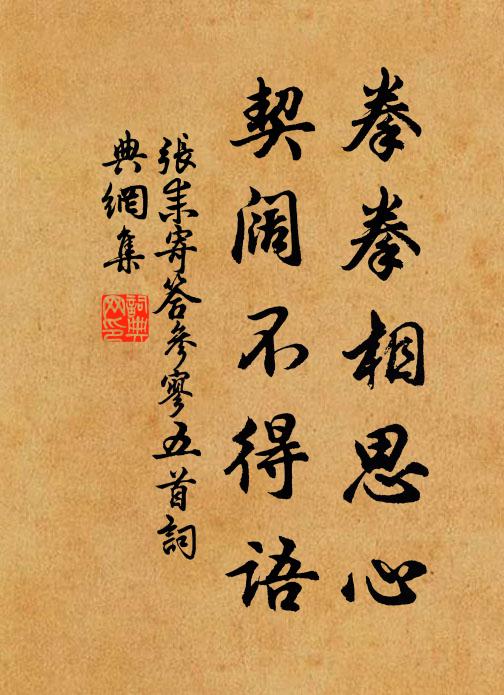 拳拳相思心
契阔不得語
張耒寄答參寥五首詞
典網集
詞典网印